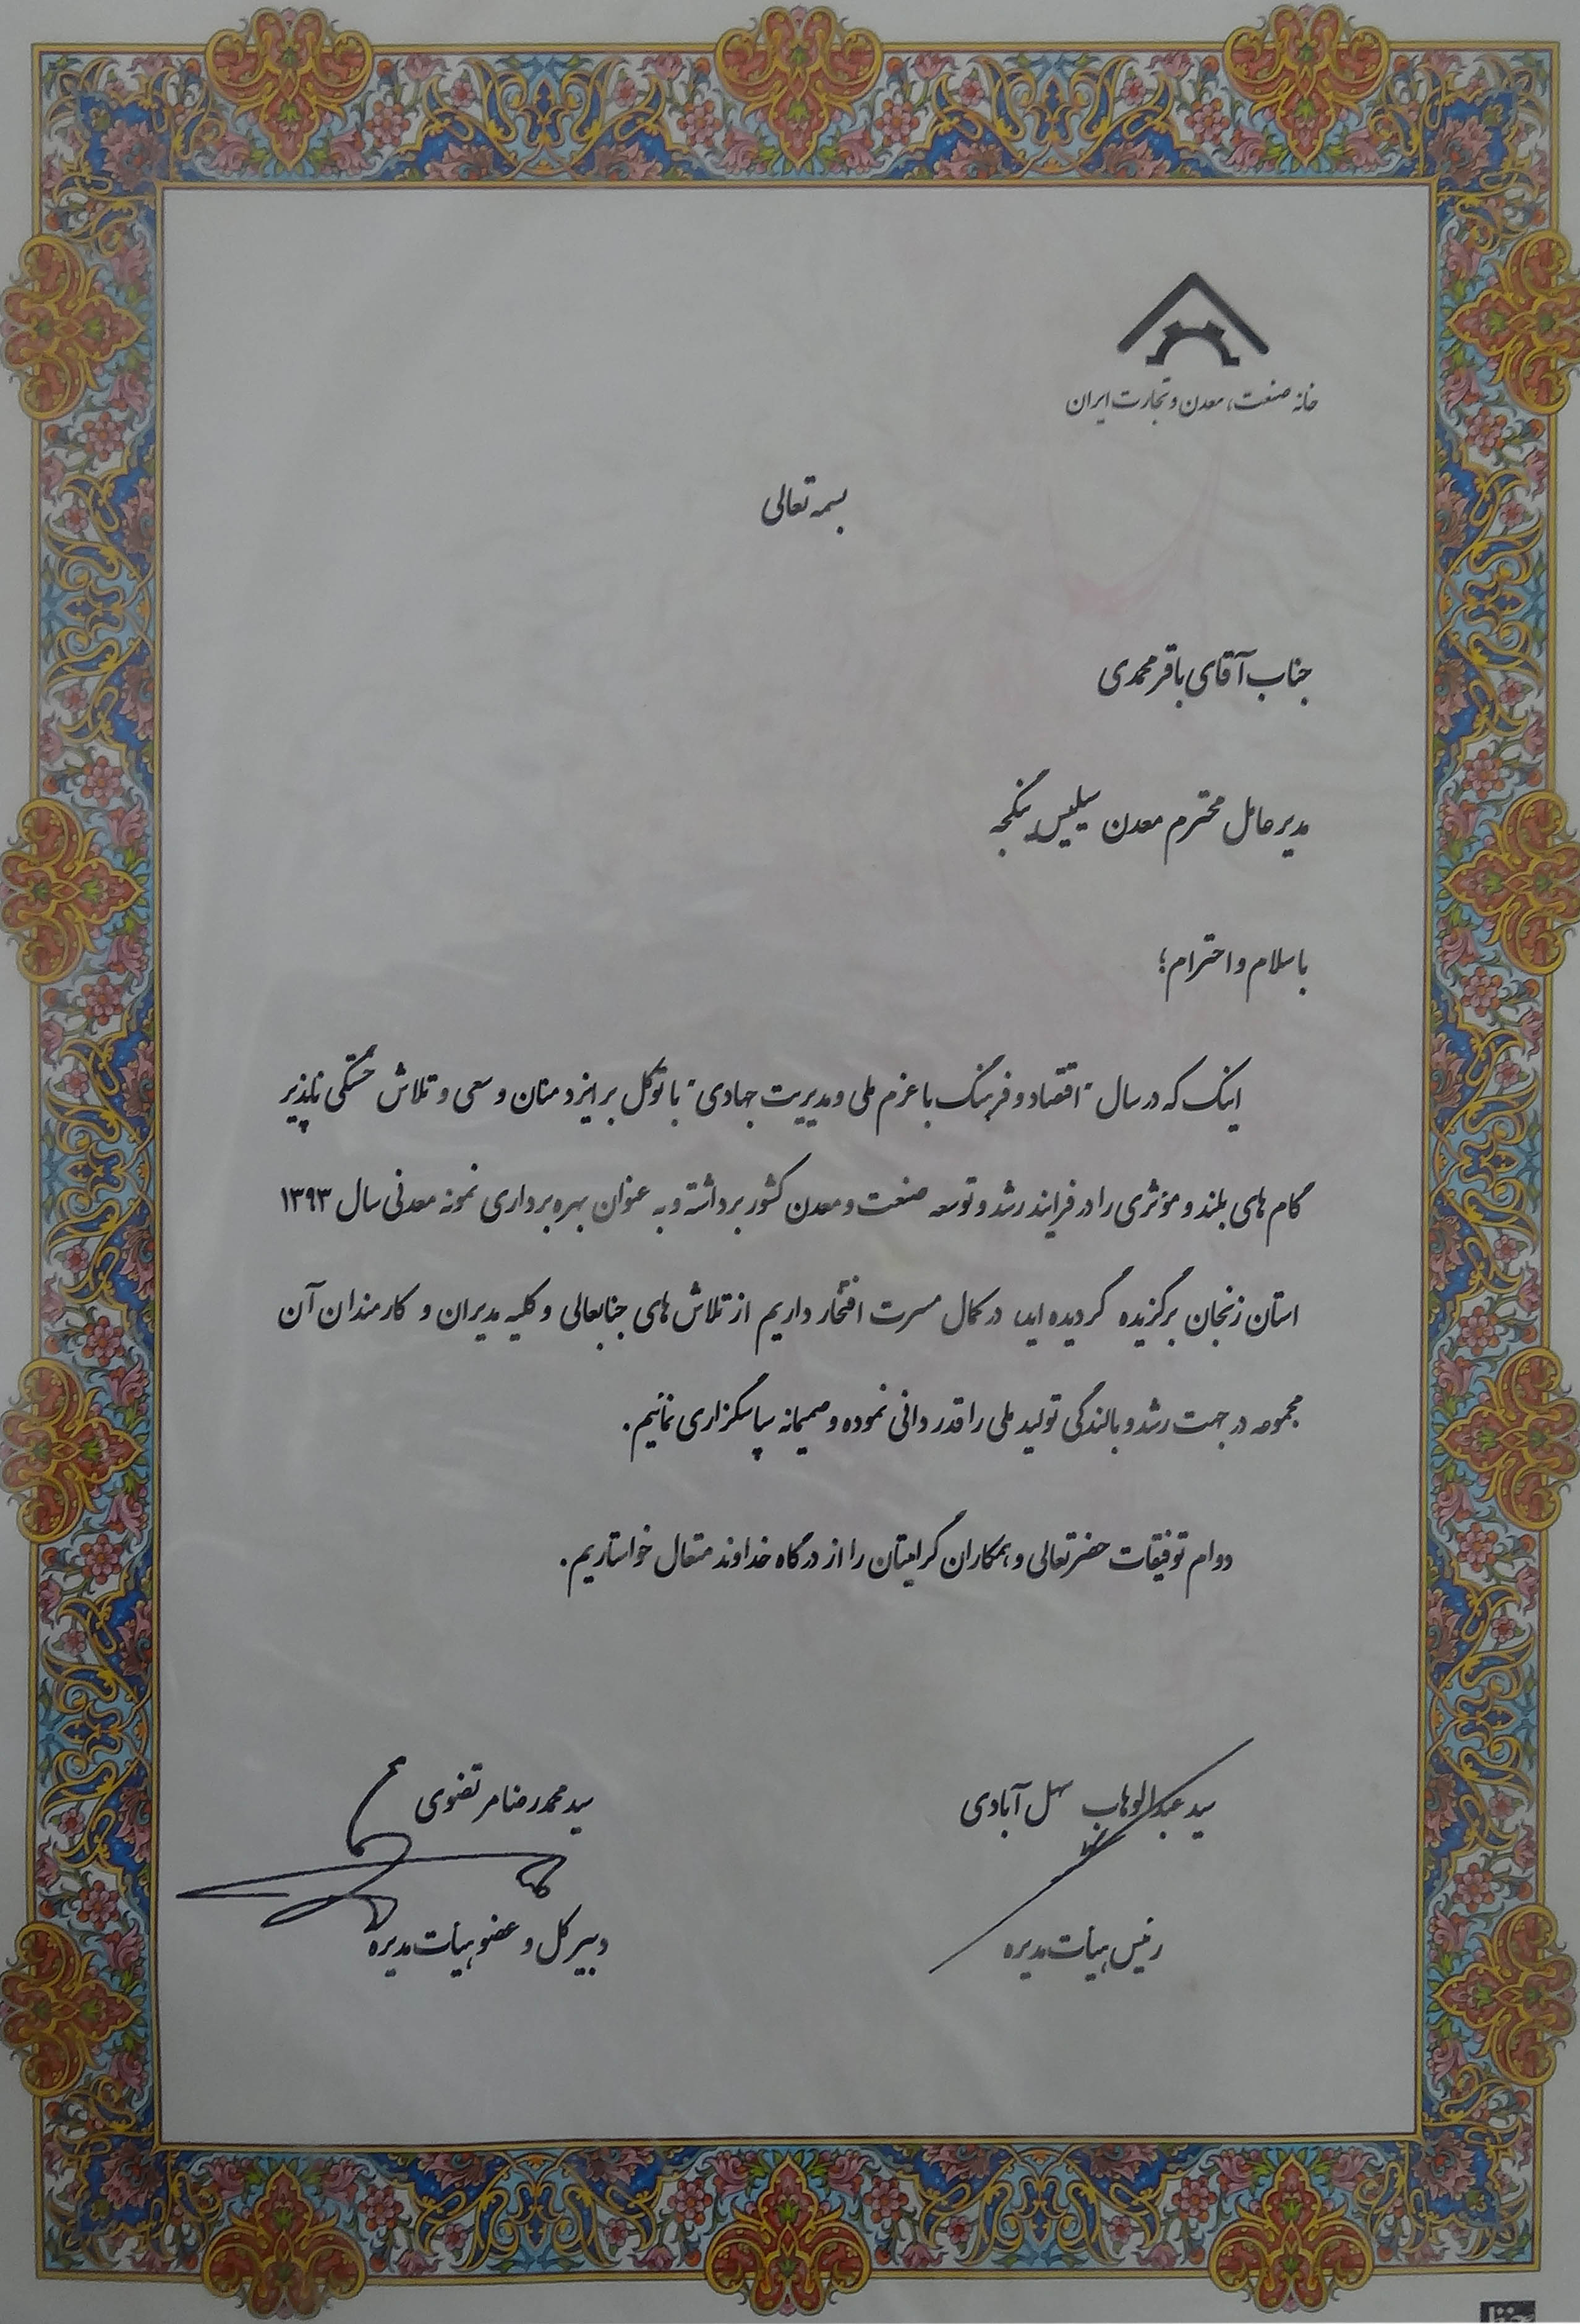 خانه صنعت، معدن و تجارت ایران
بسمه تعالی
جناب آقای باقر محمدی
مدیر عامل محترم معدن سیلیس
با سلام و احترام؛
اینک که در سال "اقتصاد و فرهنگ با عزم ملی و مدیریت جهادی" با توکل بر ایزد منان و سعی و تلاش خستگی ناپذیر
گام های بلند و موثری را در فرایند رشد و توسعه صنعت و معدن کشور برداشته و به عنوان بهره برداری نمونه معدنی سال ۱۳۹۳
استان زنجان برگزیده گردیده اید، در کمال مسرت افتخار داریم از تلاش های جنابعالی و کلیه مدیران و کارمندان آن
مجموعه در جهت رشد و بالندگی تولید ملی را قدردانی نموده و صمیمانه سپاسگزاری نمائیم.
دوام توفیقات حضرتعالی و همکاران گرامیتان را از درگاه خداوند متعال خواستاریم.
سید عبدالوهاب سهل آبادی
رئیس هیأت مدیره
سید محمدرضا مرتضوی
دبیر کل و عضو هیأت مدیره